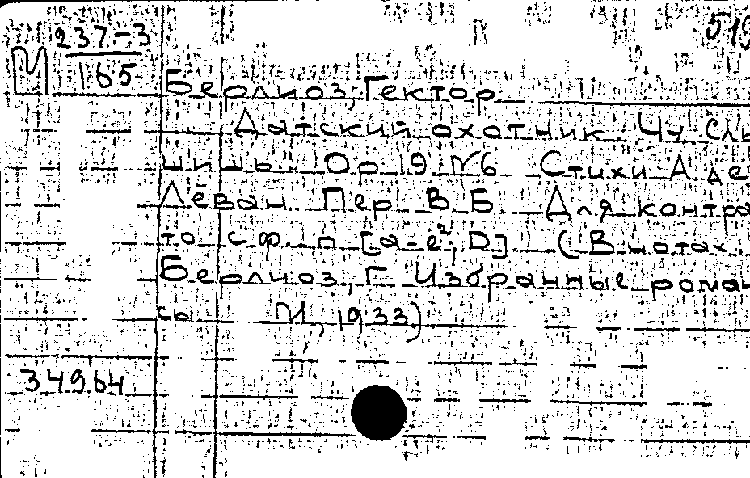 519
М 237-3
165
Берлиоз, Гектор
Датский охотник. Чу слы
шишь. Ор. 19 №6 Стихи А. де
Лёван. Пер. В.Б. Для контра
то с ф-п. [a-e², D.] (В нотах
Берлиоз, Г. Избранные роман
сы М., 1933.)
349.64